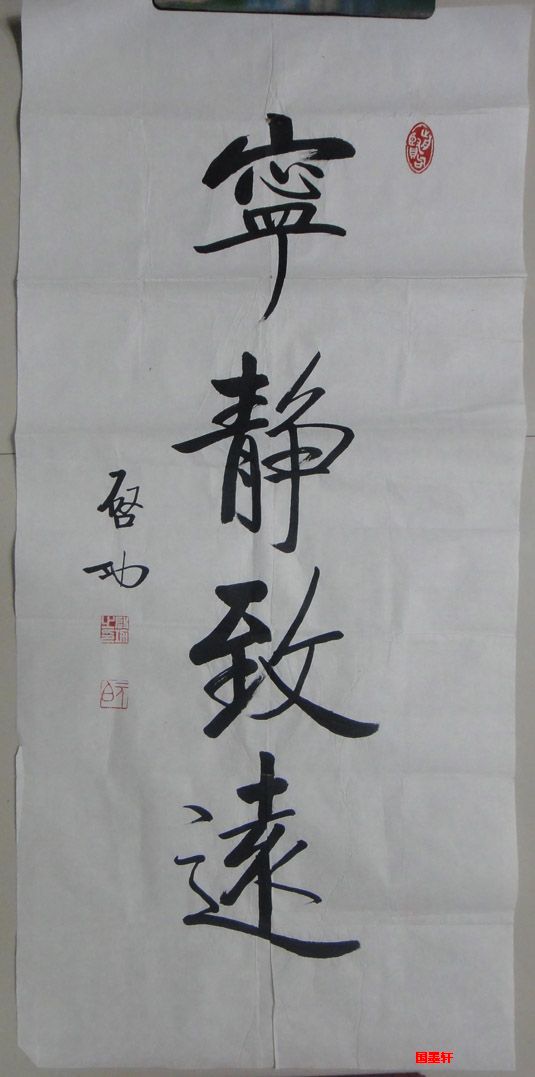 寧靜致遠
啓功
国墨轩